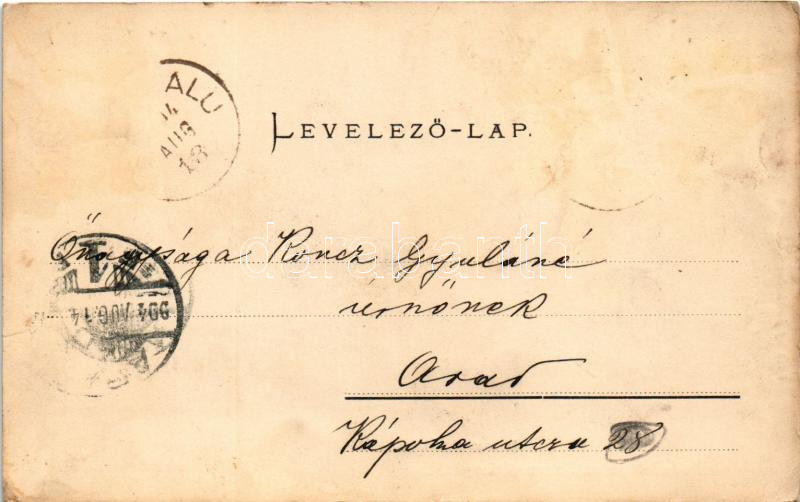 ALU
04
AUG
13
LEVELEZŐ-LAP.
Őnagysága Koncz Gyuláné
úrnőnek
Arad
Kápolna utcza 28
904 AUG. 14
darabanth